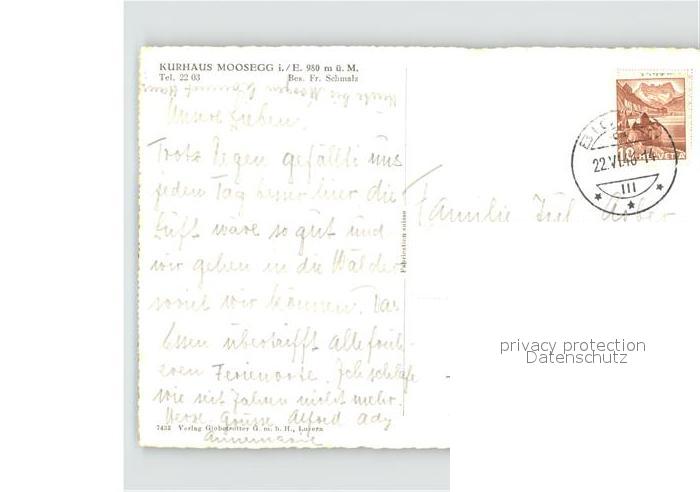 KURHAUS MOOSEGG i./E. 980 m ü. M.
Tel. 22 03 Bes. Fr. Schmalz
Unsere Lieben,
Trotz Regen gefällts uns
jeden Tag besser hier, die
Luft wäre so gut und
wir gehen in die Wälder
soviel wir können. Das
Essen übertrifft alle früh-
eren Ferienorte. Ich schlafe
wie seit Jahren nicht mehr.
Herzl. Grüsse Alfred Ady
Annemarie
7432 Verlag Globetrotter G. m. b. H., Luzern
Fabrication suisse
Familie
22.VI.48-14
III
10 HELVETIA
privacy protection
Datenschutz